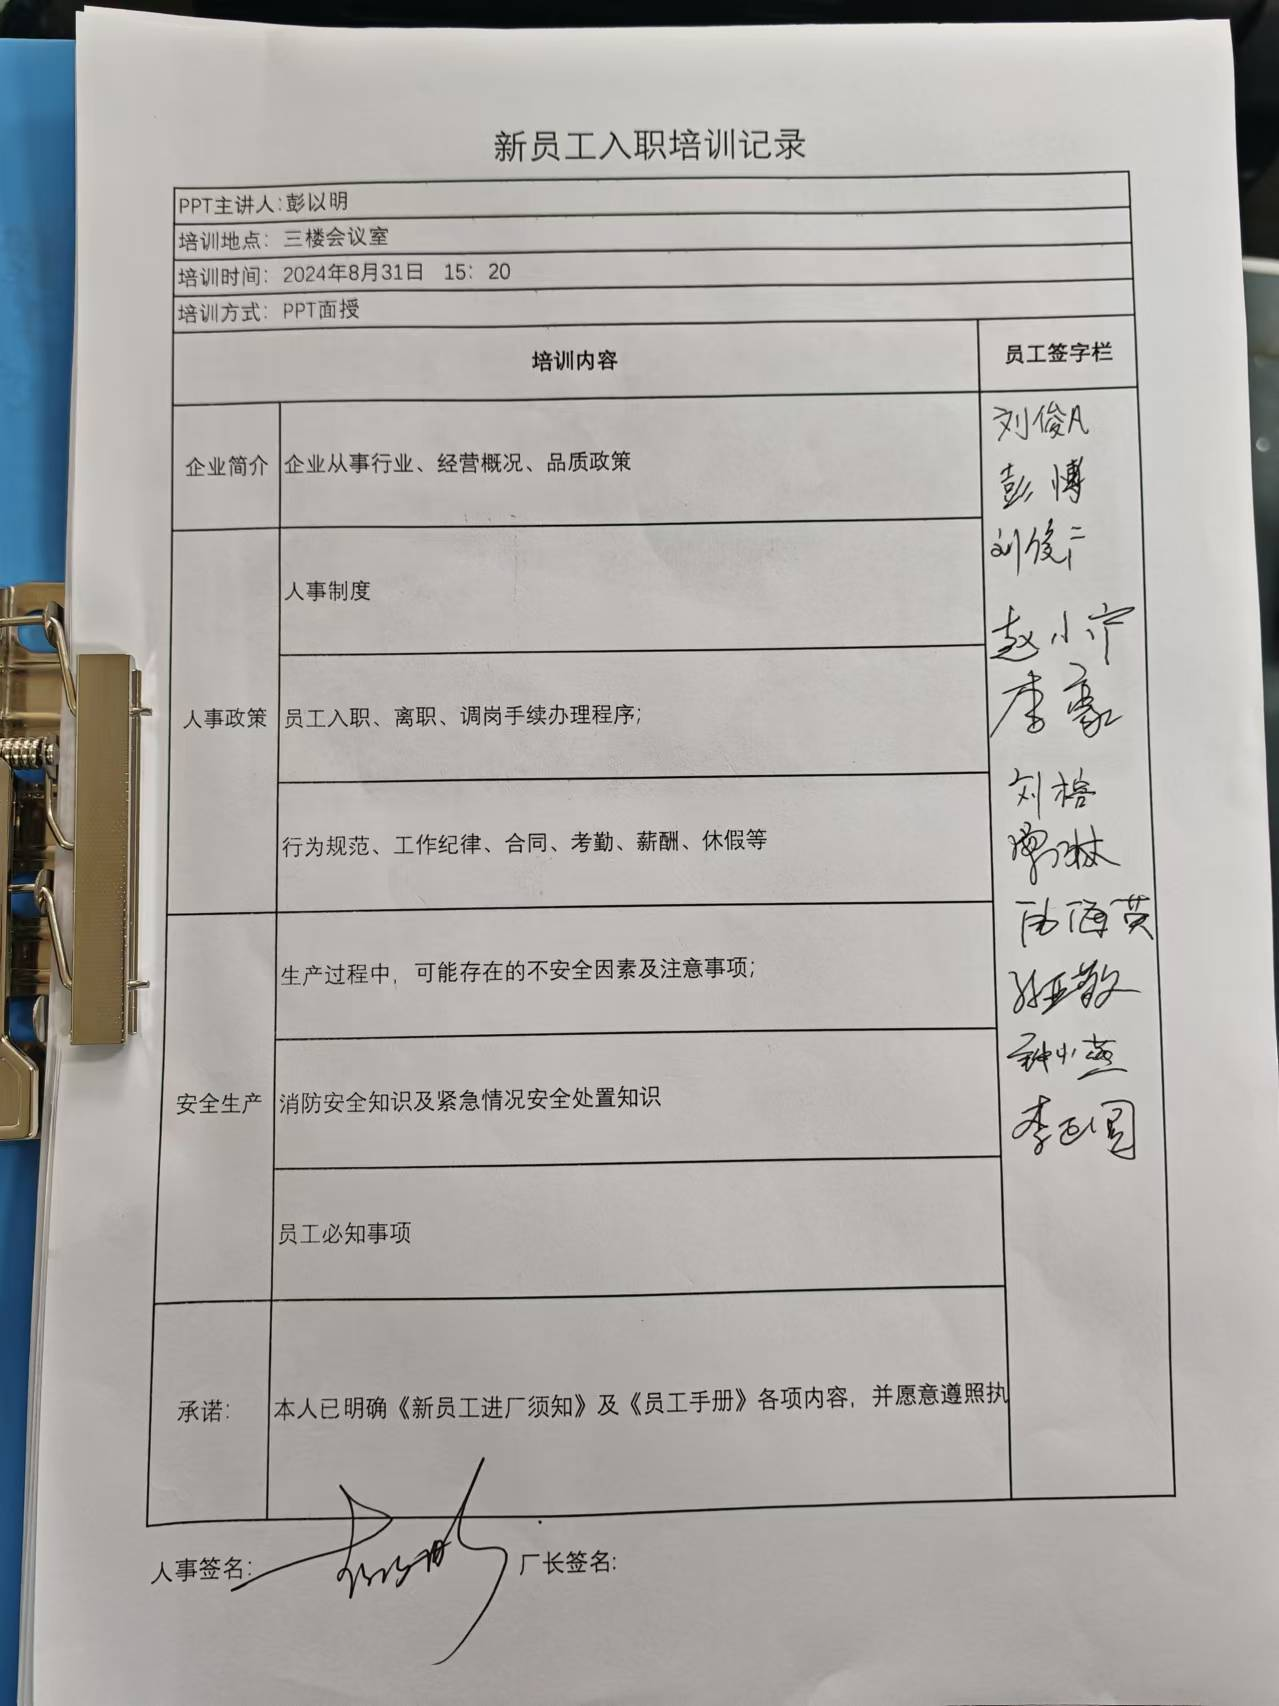 新员工入职培训记录
PPT主讲人:彭以明
培训地点：三楼会议室
培训时间：2024年8月31日 15：20
培训方式：PPT面授
培训内容
员工签字栏
企业简介
企业从事行业、经营概况、品质政策
人事政策
人事制度
员工入职、离职、调岗手续办理程序；
行为规范、工作纪律、合同、考勤、薪酬、休假等
安全生产
生产过程中，可能存在的不安全因素及注意事项；
消防安全知识及紧急情况安全处置知识
员工必知事项
承诺：
本人已明确《新员工进厂须知》及《员工手册》各项内容，并愿意遵照执
刘俊凡
彭博
刘俊仁
赵小宁
李豪
刘榕
海英
钟小燕
李
人事签名：
厂长签名：